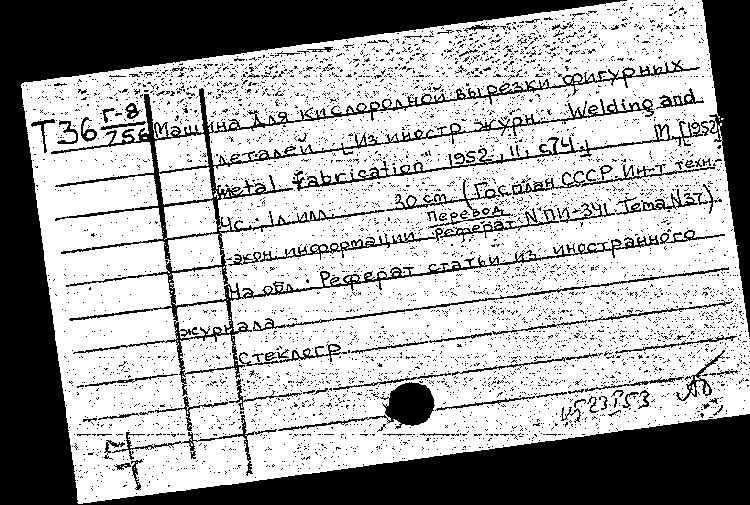 Т36 Г-8/756 Машина для кислородной вырезки фигурных
деталей. [Из иностр. журн. "Welding and
metal fabrication" 1952, 11, с74.] М, [1952]
4с., 1л. илл. 30 cm. (Госплан СССР. Ин-т техн.
-экон. информации. Перевод Реферат N ПИ-341. Тема N37.)
На обл.: Реферат статьи из иностранного
журнала
стеклогр